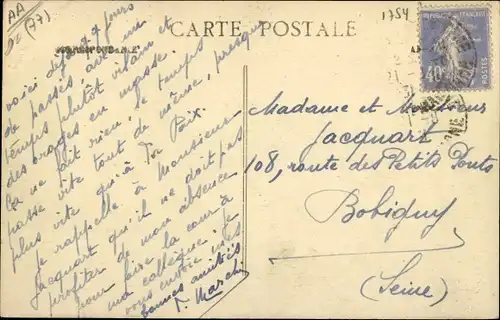 AA
(77)
CARTE POSTALE
CORRESPONDANCE
1754
40
POSTES
voici déjà 4 jours
de passés, avec un
temps plutôt vilain et
des orages en masse.
Ça ne fait rien, le temps
passe vite tout de même, presque
plus vite qu'à Paix.
Je rappelle à Monsieur
Jacquart qu'il ne doit pas
profiter de mon absence
pour faire la cour à
ma collègue. Je
vous envoie mes
bonnes amitiés
T. March
Madame et Monsieur
Jacquart
108, route des Petits Ponts
Bobigny
(Seine)